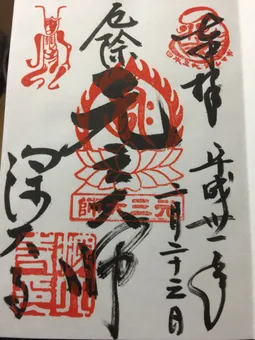 奉拝
平成卅一年
二月二十三日
厄除
元三大師
深大寺
元三大師